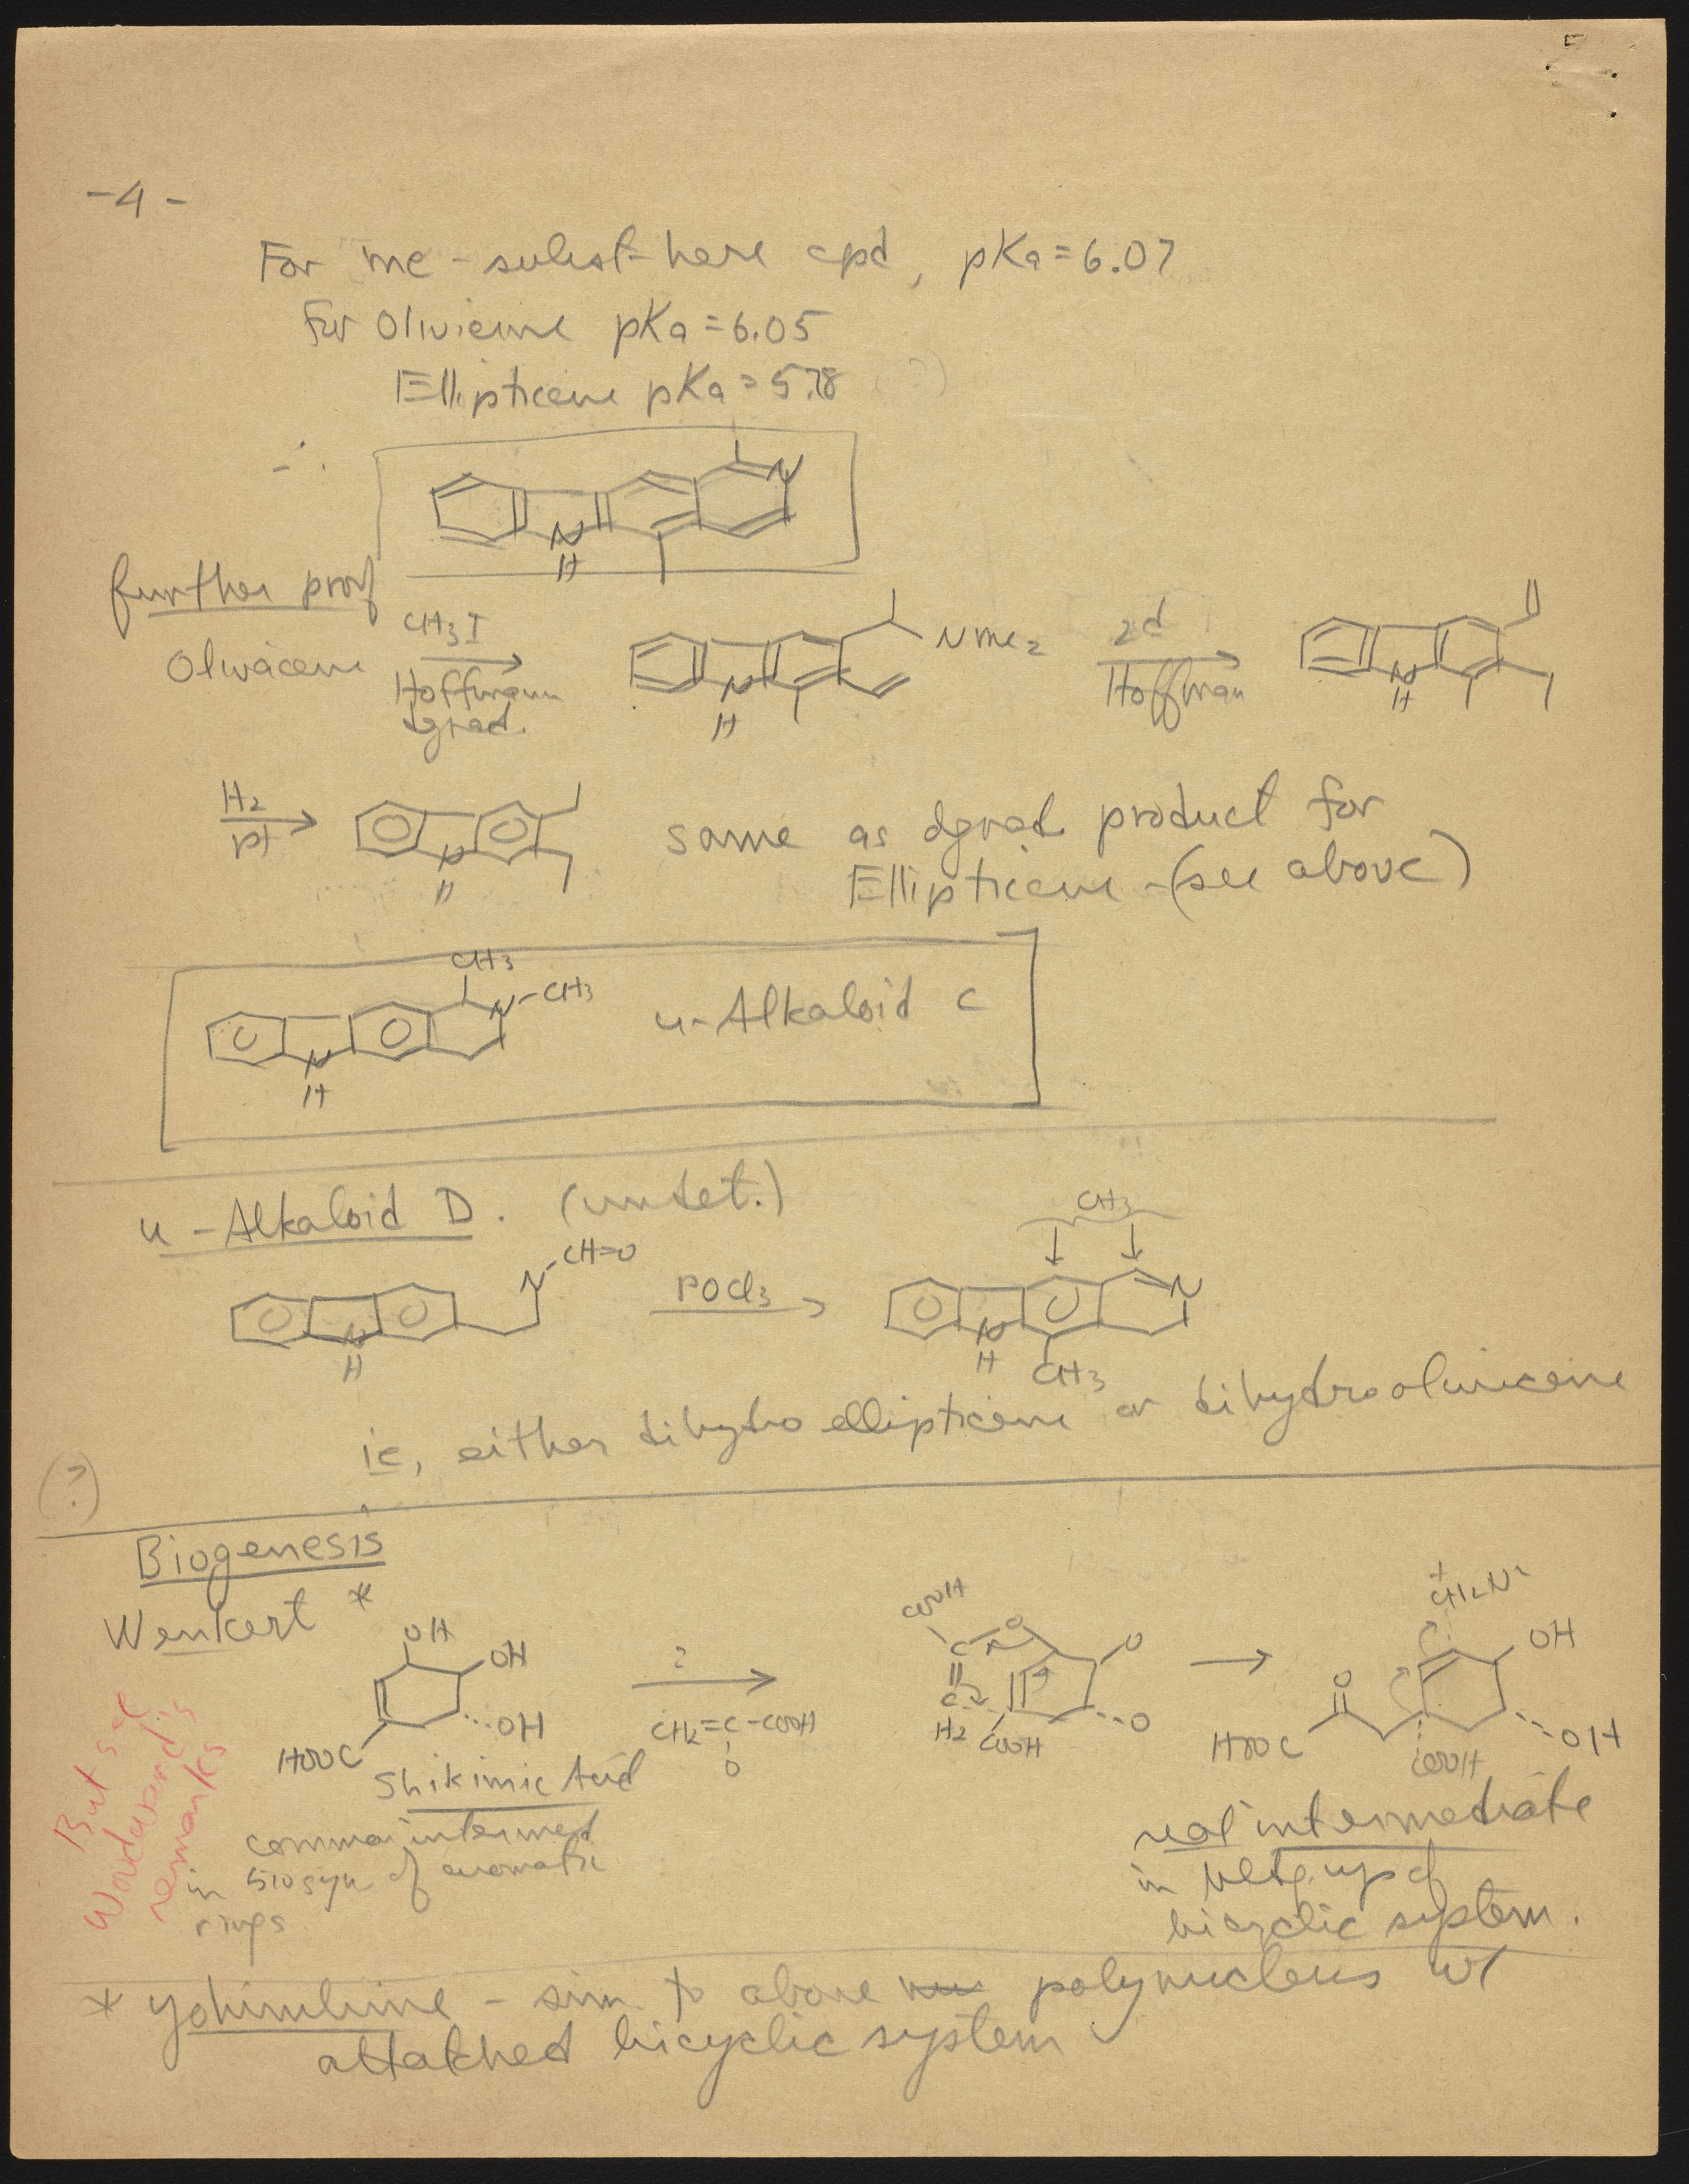 -4-
For me-subst here cpd, pKa=6.07
for Olivicine pKa=6.05
Ellipticene pKa=5.78 (?)
∴
N
H
further proof
Olivacene
CH3I
Hoffmann
dgrad.
NMe2
N
H
2d
Hoffman
N
H
H2
Pt
N
H
same as dgrad product for
Ellipticene-(see above)
CH3
N-CH3
N
H
u-Alkaloid C
u-Alkaloid D. (undet.)
N-CH=O
N
H
POCl3
CH3
N
N
H
CH3
ie, either dihydroellipticene or dihydroolivicene
(?)
Biogenesis
Wenkert *
OH
OH
OH
HOOC
Shikimic Acid
common intermed
in biosyn of aromatic
rings
But see
Woodward's
remarks
?
CH2=C-COOH
O
COOH
C
O
O
O
H2
COOH
+
CH2N
OH
O
HOOC
OH
COOH
real intermediate
in
bicyclic system.
* yohimbine - sim to above polynucleus w/
attatched bicyclic system